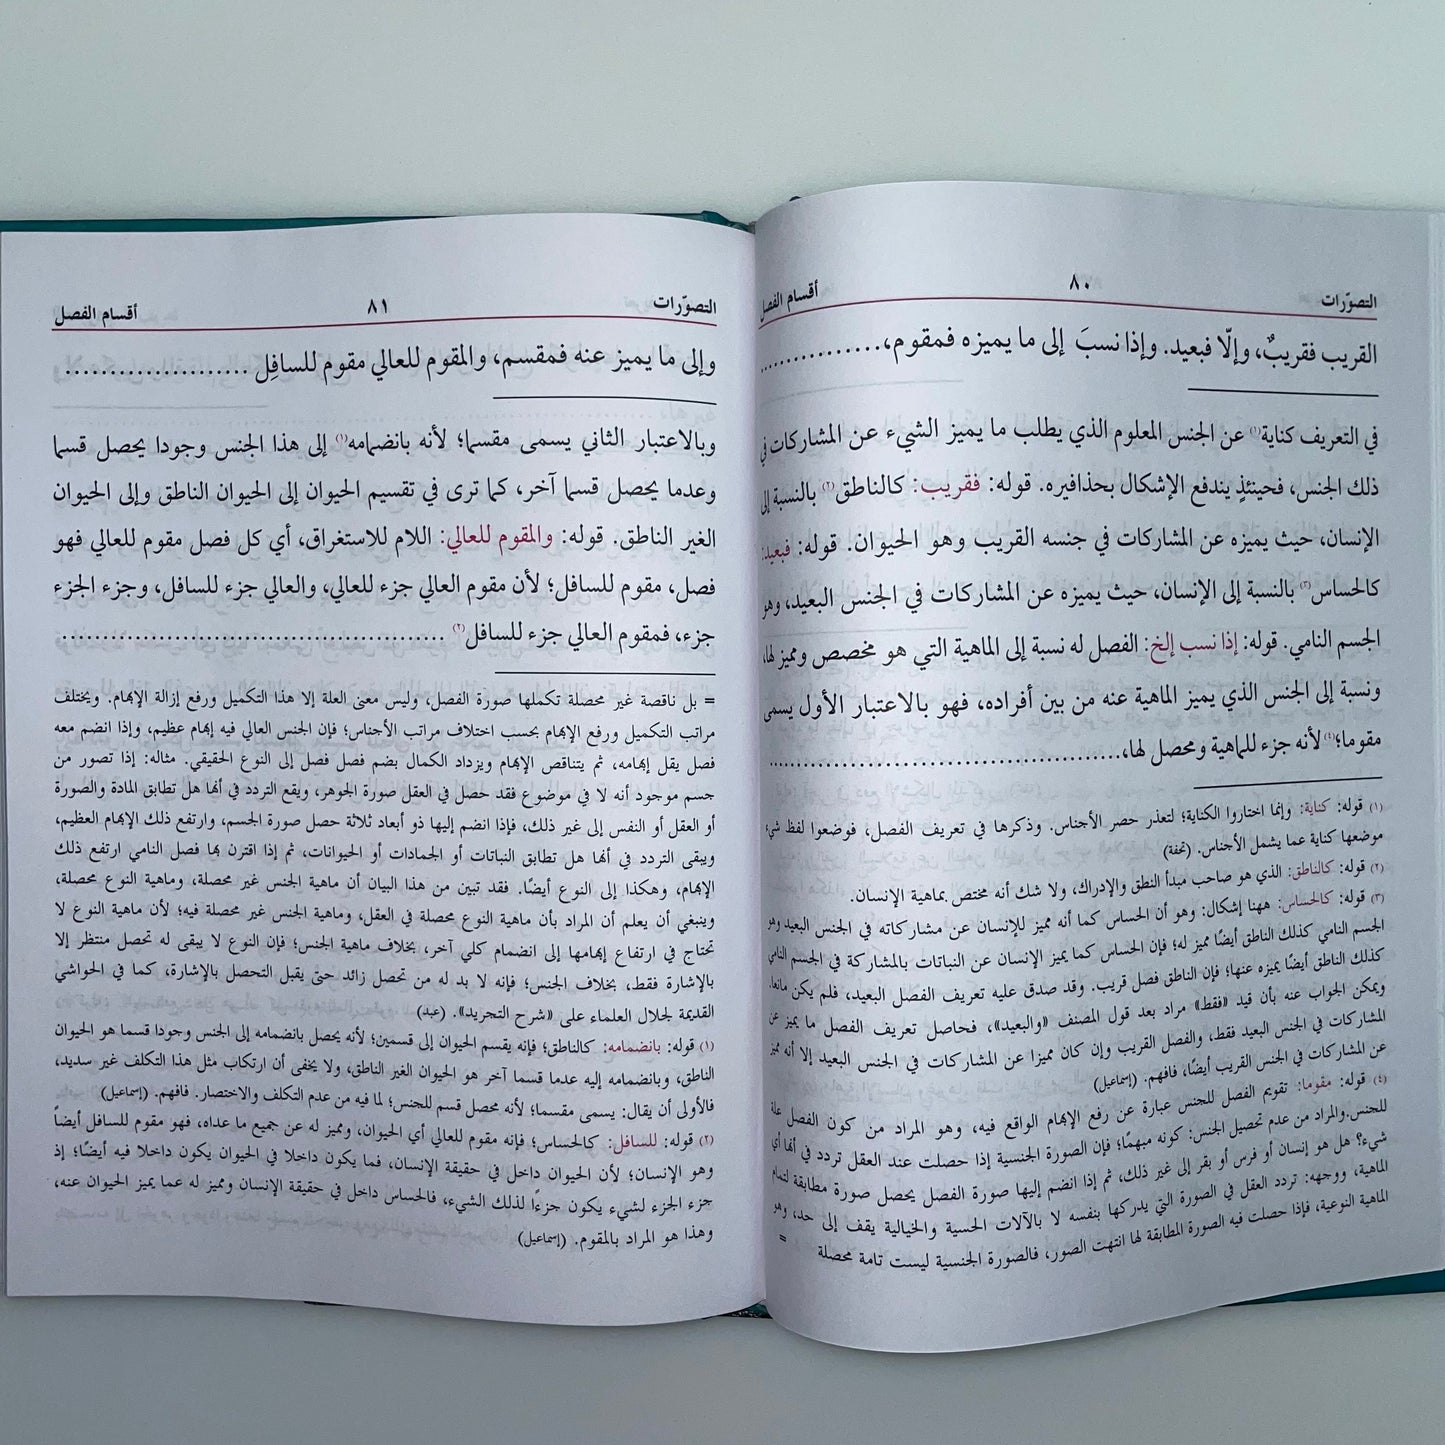 التصوّرات ٨٠ أقسام الفصل
القريب فقريبٌ، وإلّا فبعيد. وإذا نسبَ إلى ما يميزه فمقوم، ...............
في التعريف كناية(١) عن الجنس المعلوم الذي يطلب ما يميز الشيء عن المشاركات في
ذلك الجنس، فحينئذٍ يندفع الإشكال بحذافيره. قوله: فقريب: كالناطق(٢) بالنسبة إلى
الإنسان، حيث يميزه عن المشاركات في جنسه القريب وهو الحيوان. قوله: فبعيد:
كالحساس(٣) بالنسبة إلى الإنسان، حيث يميزه عن المشاركات في الجنس البعيد، وهو
الجسم النامي. قوله: إذا نسب إلخ: الفصل له نسبة إلى الماهية التي هو مخصص ومميز لها،
ونسبة إلى الجنس الذي يميز الماهية عنه من بين أفراده، فهو بالاعتبار الأول يسمى
مقوما؛(٤) لأنه جزء للماهية ومحصل لها، ...............
(١) قوله: كناية: وإنما اختاروا الكناية؛ لتعذر حصر الأجناس. وذكرها في تعريف الفصل، فوضعوا لفظ شيء
موضعها كناية عما يشمل الأجناس. (تحفة)
(٢) قوله: كالناطق: الذي هو صاحب مبدأ النطق والإدراك، ولا شك أنه مختص بماهية الإنسان.
(٣) قوله: كالحساس: ههنا إشكال: وهو أن الحساس كما أنه مميز للإنسان عن مشاركاته في الجنس البعيد وهو
الجسم النامي كذلك الناطق أيضًا مميز له؛ فإن الحساس كما يميز الإنسان عن النباتات بالمشاركة في الجسم النامي
كذلك الناطق أيضًا يميزه عنها؛ فإن الناطق فصل قريب. وقد صدق عليه تعريف الفصل البعيد، فلم يكن مانعا.
ويمكن الجواب عنه بأن قيد «فقط» مراد بعد قول المصنف «والبعيد»، فحاصل تعريف الفصل ما يميز عن
المشاركات في الجنس البعيد فقط، والفصل القريب وإن كان مميزا عن المشاركات في الجنس البعيد إلا أنه مميز
عن المشاركات في الجنس القريب أيضًا، فافهم. (إسماعيل)
(٤) قوله: مقوما: تقويم الفصل للجنس عبارة عن رفع الإبهام الواقع فيه، وهو المراد من كون الفصل علة
للجنس.والمراد من عدم تحصيل الجنس: كونه مبهمًا؛ فإن الصورة الجنسية إذا حصلت عند العقل تردد في أنها أي
شيء؟ هل هو إنسان أو فرس أو بقر إلى غير ذلك، ثم إذا انضم إليها صورة الفصل يحصل صورة مطابقة لتمام
الماهية، ووجهه: تردد العقل في الصورة التي يدركها بنفسه لا بالآلات الحسية والخيالية يقف إلى حد، وهو
الماهية النوعية، فإذا حصلت فيه الصورة المطابقة لها انتهت الصور، فالصورة الجنسية ليست تامة محصلة =
التصوّرات ٨١ أقسام الفصل
وإلى ما يميز عنه فمقسم، والمقوم للعالي مقوم للسافِل ...............
وبالاعتبار الثاني يسمى مقسما؛ لأنه بانضمامه(١) إلى هذا الجنس وجودا يحصل قسما
وعدما يحصل قسما آخر، كما ترى في تقسيم الحيوان إلى الحيوان الناطق وإلى الحيوان
الغير الناطق. قوله: والمقوم للعالي: اللام للاستغراق، أي كل فصل مقوم للعالي فهو
فصل، مقوم للسافل؛ لأن مقوم العالي جزء للعالي، والعالي جزء للسافل، وجزء الجزء
جزء، فمقوم العالي جزء للسافل(٢) ...............
= بل ناقصة غير محصلة تكملها صورة الفصل، وليس معنى العلة إلا هذا التكميل ورفع إزالة الإبهام. ويختلف
مراتب التكميل ورفع الإبهام بحسب اختلاف مراتب الأجناس؛ فإن الجنس العالي فيه إبهام عظيم، وإذا انضم معه
فصل يقل إبهامه، ثم يتناقص الإبهام ويزداد الكمال بضم فصل فصل إلى النوع الحقيقي. مثاله: إذا تصور من
جسم موجود أنه لا في موضوع فقد حصل في العقل صورة الجوهر، ويقع التردد في أنها هل تطابق المادة والصورة
أو العقل أو النفس إلى غير ذلك، فإذا انضم إليها ذو أبعاد ثلاثة حصل صورة الجسم، وارتفع ذلك الإبهام العظيم،
ويبقى التردد في أنها هل تطابق النباتات أو الجمادات أو الحيوانات، ثم إذا اقترن بها فصل النامي ارتفع ذلك
الإبهام، وهكذا إلى النوع أيضًا. فقد تبين من هذا البيان أن ماهية الجنس غير محصلة، وماهية النوع محصلة،
وينبغي أن يعلم أن المراد بأن ماهية النوع محصلة في العقل، وماهية الجنس غير محصلة فيه؛ لأن ماهية النوع لا
تحتاج في ارتفاع إبهامها إلى انضمام كلي آخر، بخلاف ماهية الجنس؛ فإن النوع لا يبقى له تحصل منتظر إلا
بالإشارة فقط، بخلاف الجنس؛ فإنه لا بد له من تحصل زائد حتى يقبل التحصل بالإشارة، كما في الحواشي
القديمة لجلال العلماء على «شرح التجريد». (عبد)
(١) قوله: بانضمامه: كالناطق؛ فإنه يقسم الحيوان إلى قسمين؛ لأنه يحصل بانضمامه إلى الجنس وجودا قسما هو الحيوان
الناطق، وبانضمامه إليه عدما قسما آخر هو الحيوان الغير الناطق، ولا يخفى أن ارتكاب مثل هذا التكلف غير سديد،
فالأولى أن يقال: يسمى مقسما؛ لأنه محصل قسم للجنس؛ لما فيه من عدم التكلف والاختصار. فافهم. (إسماعيل)
(٢) قوله: للسافل: كالحساس؛ فإنه مقوم للعالي أي الحيوان، ومميز له عن جميع ما عداه، فهو مقوم للسافل أيضاً
وهو الإنسان؛ لأن الحيوان داخل في حقيقة الإنسان، فما يكون داخلا في الحيوان يكون داخلا فيه أيضًا؛ إذ
جزء الجزء لشيء يكون جزءًا لذلك الشيء، فالحساس داخل في حقيقة الإنسان ومميز له عما يميز الحيوان عنه،
وهذا هو المراد بالمقوم. (إسماعيل)